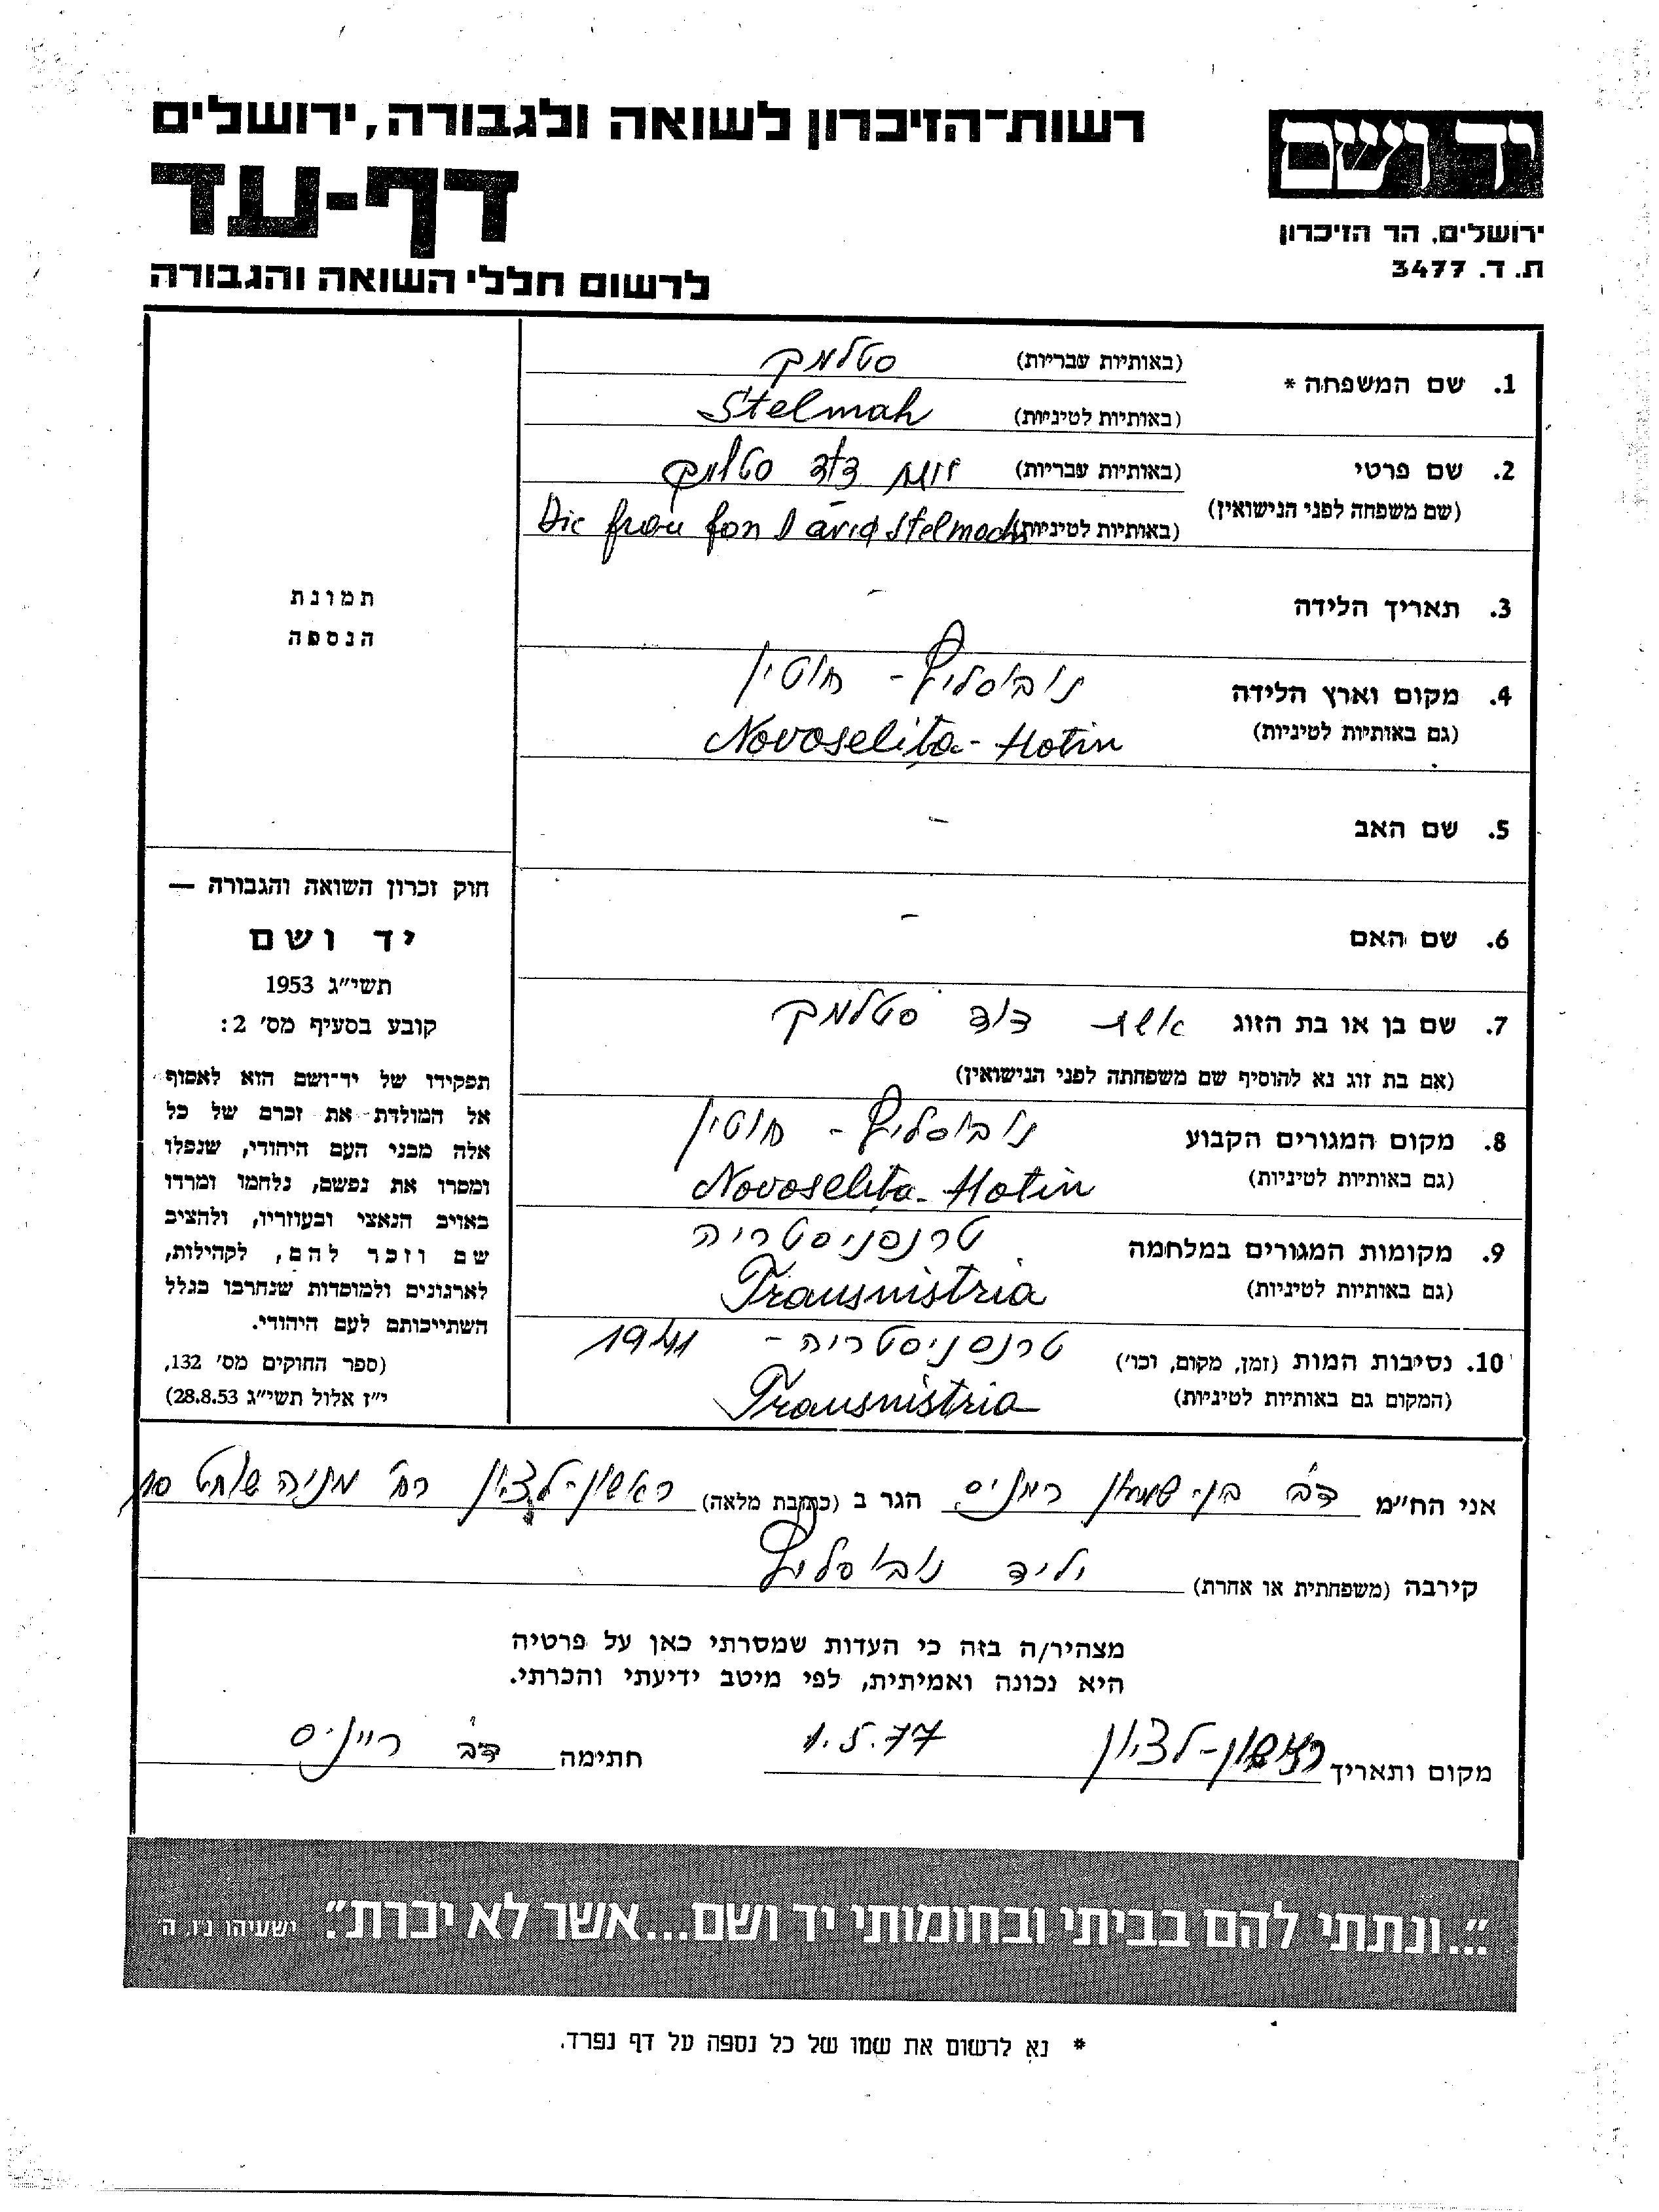 רשות־הזיכרון לשואה ולגבורה, ירושלים
דף-עד
לרשום חללי השואה והגבורה
יד ושם
ירושלים, הר הזיכרון
ת. ד. 3477
1. שם המשפחה * (באותיות עבריות) סטלמך
(באותיות לטיניות) Stelmah
2. שם פרטי (באותיות עבריות) דוד סטלמך
(שם משפחה לפני הנישואין) (באותיות לטיניות) Die frau fon David Stelmach
3. תאריך הלידה –
4. מקום וארץ הלידה נובוסליץ - חוטין
(גם באותיות לטיניות) Novoselița - Hotin
5. שם האב –
6. שם האם –
7. שם בן או בת הזוג אשת דוד סטלמך
(אם בת זוג נא להוסיף שם משפחתה לפני הנישואין)
8. מקום המגורים הקבוע נובוסליץ - חוטין
(גם באותיות לטיניות) Novoselița - Hotin
9. מקומות המגורים במלחמה טרנסניסטריה
(גם באותיות לטיניות) Transnistria
10. נסיבות המות (זמן, מקום, וכו') טרנסניסטריה - 1941
(המקום גם באותיות לטיניות) Transnistria
תמונת
הנספה
חוק זכרון השואה והגבורה —
יד ושם
תשי״ג 1953
קובע בסעיף מס׳ 2:
תפקידו של יד־ושם הוא לאסוף
אל המולדת את זכרם של כל
אלה מבני העם היהודי, שנפלו
ומסרו את נפשם, נלחמו ומרדו
באויב הנאצי ובעוזריו, ולהציב
שם וזכר להם, לקהילות,
לארגונים ולמוסדות שנחרבו בגלל
השתייכותם לעם היהודי.
(ספר החוקים מס׳ 132,
י״ז אלול תשי״ג 28.8.53)
אני הח״מ דב בן-שמעון הגר ב (כתובת מלאה) ראשון-לציון רח' מניה שוחט 10
קירבה (משפחתית או אחרת) יליד נובוסליץ
מצהיר/ה בזה כי העדות שמסרתי כאן על פרטיה
היא נכונה ואמיתית, לפי מיטב ידיעתי והכרתי.
מקום ותאריך ראשון-לציון 1.5.77 חתימה דב
״...ונתתי להם בביתי ובחומותי יד ושם...אשר לא יכרת״. ישעיהו נ״ו, ה׳
* נא לרשום את שמו של כל נספה על דף נפרד.